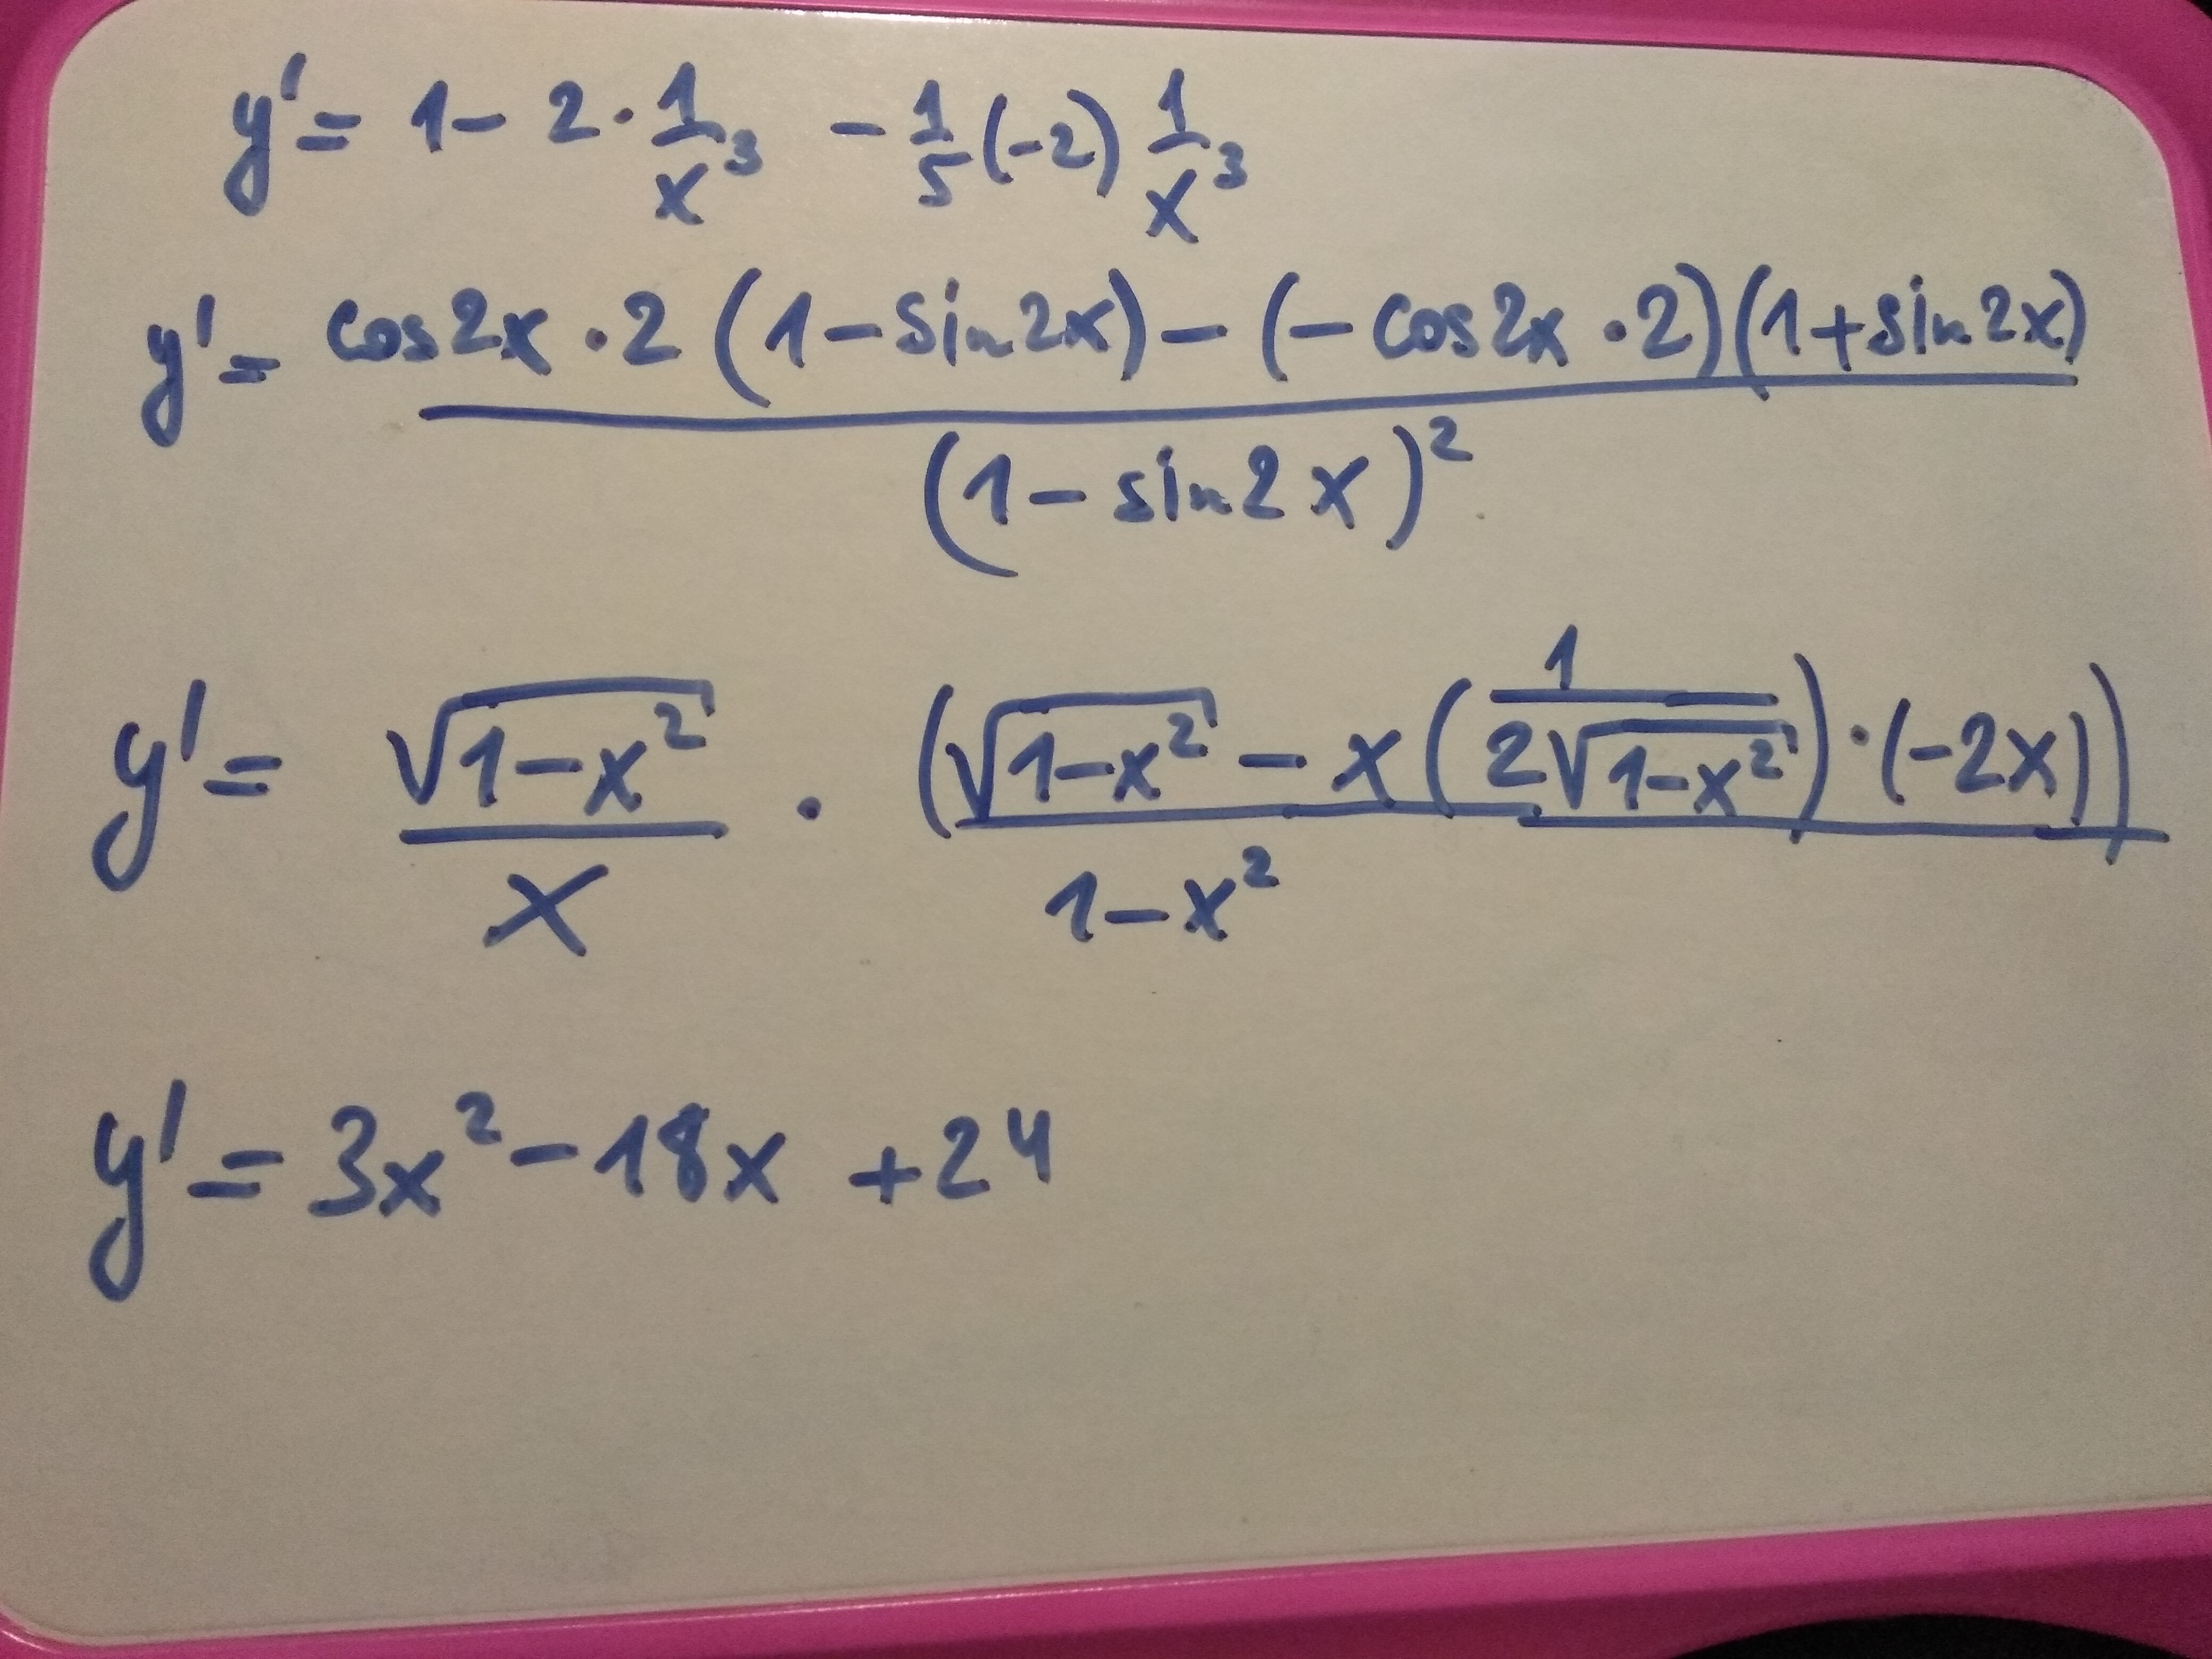 y' = 1 - 2 · 1/x³ - 1/5 (-2) 1/x³
y' = (cos2x · 2 (1 - sin2x) - (-cos2x · 2)(1 + sin2x)) / (1 - sin2x)²
y' = √(1-x²)/x · (√(1-x²) - x(1/(2√(1-x²))) · (-2x)))/(1-x²)
y' = 3x² - 18x + 24